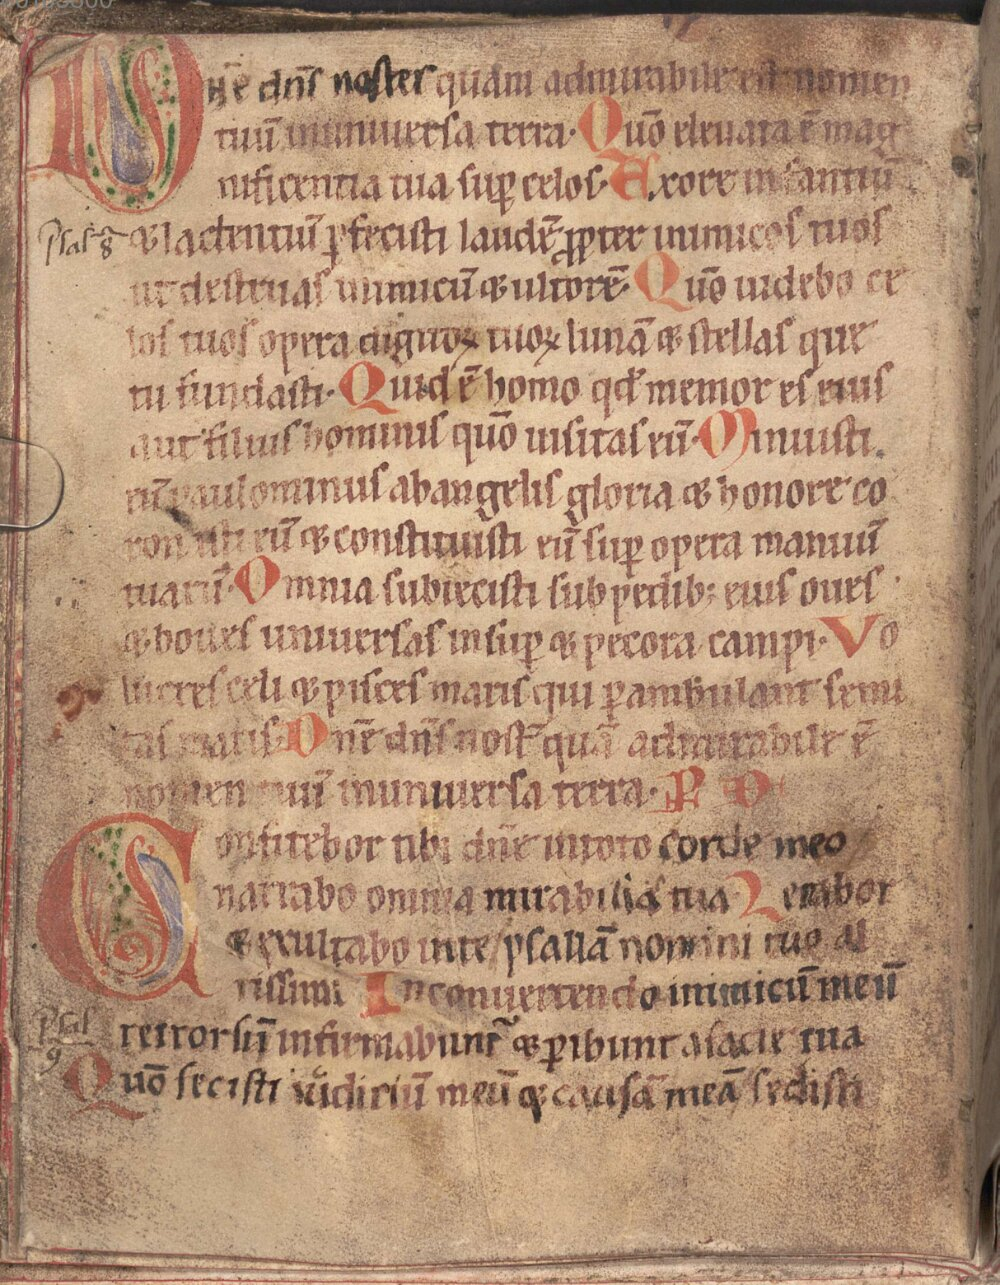 Dn̄e dn̄s noster quam admirabile est nomen
tuū in uniuersa terra. Quō eleuata ē mag
nificentia tua suꝑ celos. Ex ore infantiū
Psal 8
& lactentiū ꝑfecisti laudē ꝓpter inimicos tuos
ut destruas inimicū & ultorē. Quō uidebo ce
los tuos opera digitoꝝ tuoꝝ lunā & stellas que
tu fundasti. Quid ē homo qd̄ memor es eius
aut filius hominis quō uisitas eū. Minuisti
eū paulominus ab angelis gloria & honore co
ronasti eū & constituisti eū suꝑ opera manuū
tuarū. Omnia subiecisti sub pedib; eius oues
& boues uniuersas insuꝑ & pecora campi. Vo
lucres celi & pisces maris qui ꝑambulant semi
tas maris. Dn̄e dn̄s nosť quā admirabile ē
nomen tuū in uniuersa terra. P D
Confitebor tibi dn̄e in toto corde meo
narrabo omnia mirabilia tua Letabor
& exultabo in te psallā nomini tuo al
tissime In conuertendo inimicū meū
Psal
9
retrorsū infirmabunt̄ & ꝑibunt a facie tua
Quō fecisti iudiciū meū & causā meā sedisti